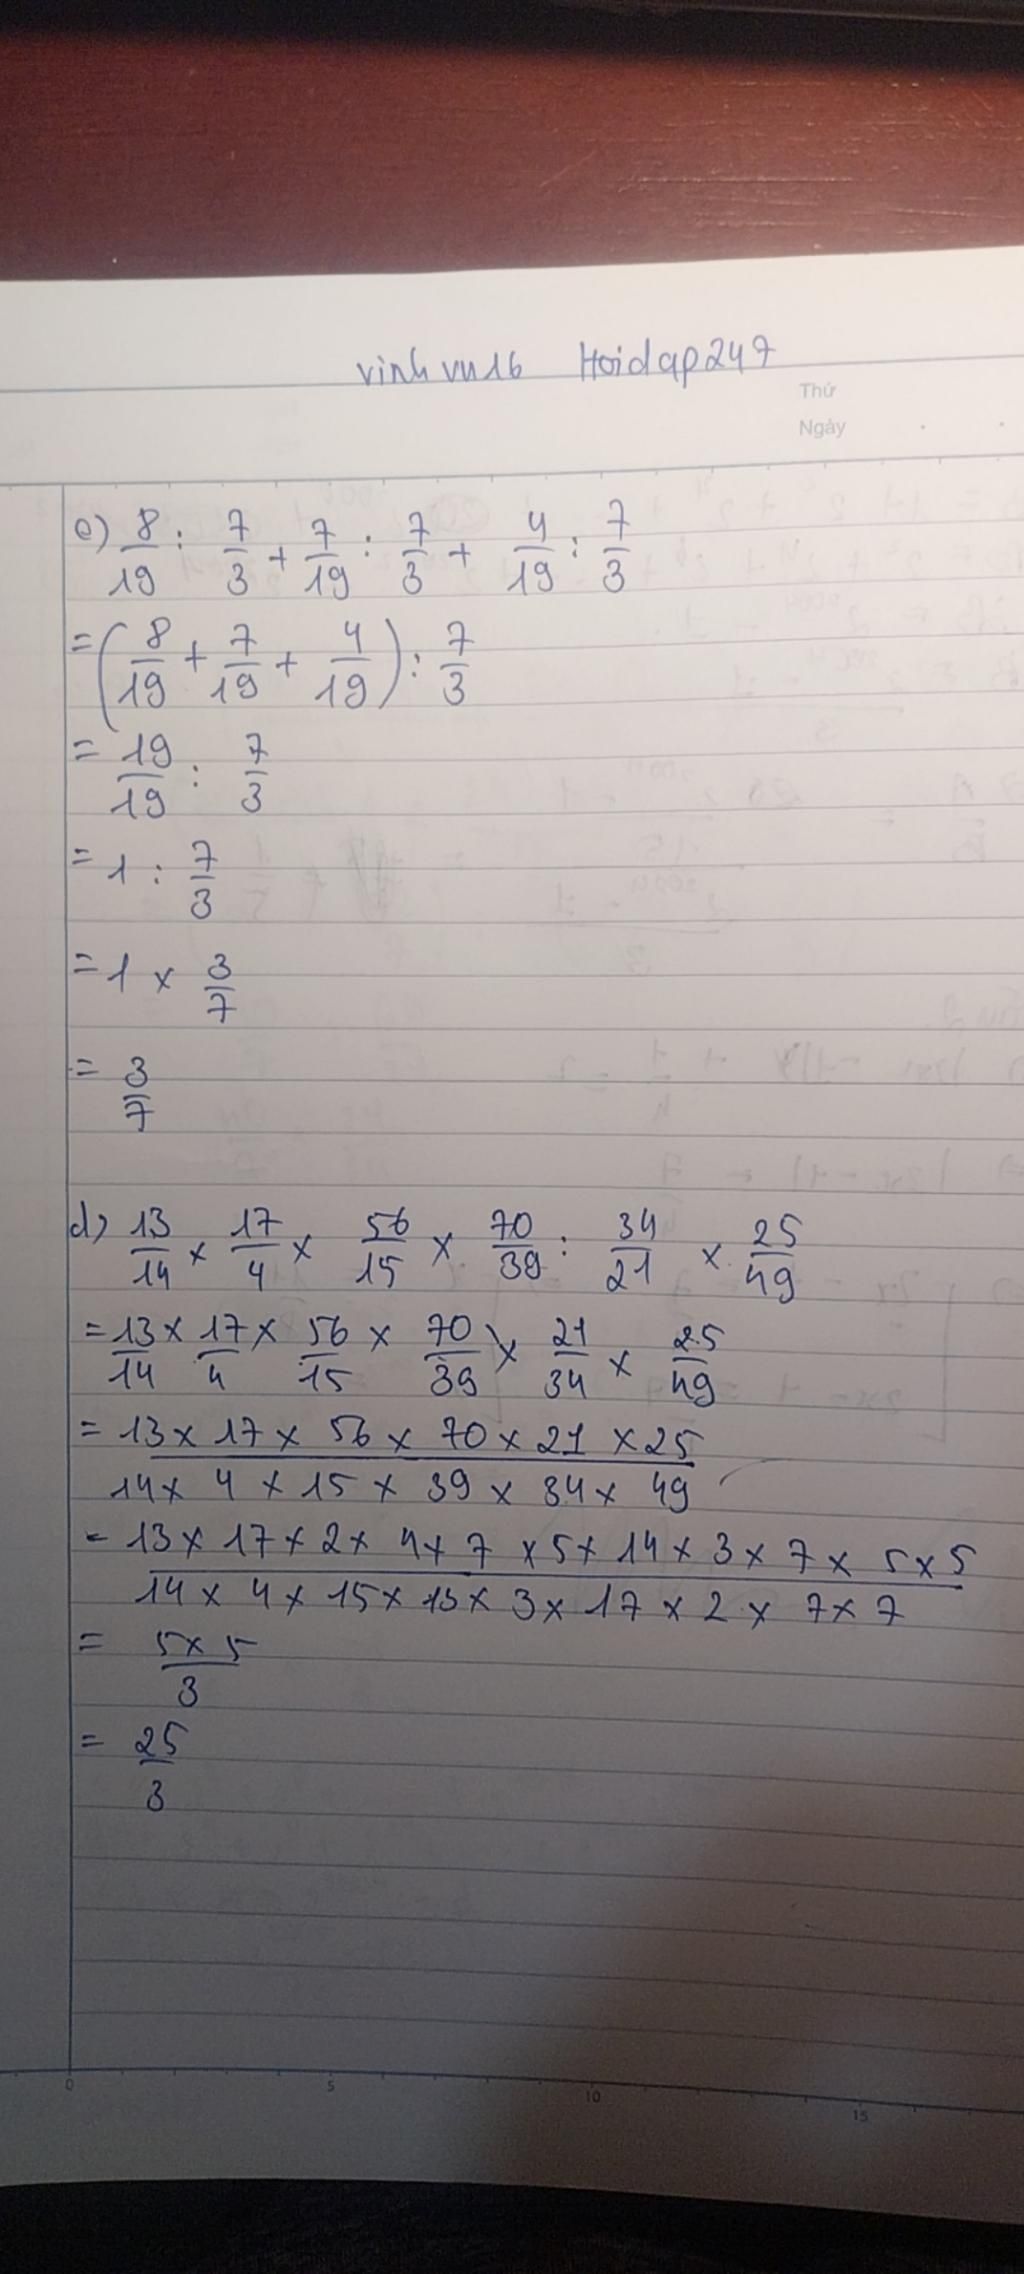 vinhvu16 Hoidap247
Thứ
Ngày
c) 8/19 : 7/3 + 7/19 : 7/3 + 4/19 : 7/3
= (8/19 + 7/19 + 4/19) : 7/3
= 19/19 : 7/3
= 1 : 7/3
= 1 x 3/7
= 3/7
d) 13/14 x 17/4 x 56/15 x 70/39 : 34/21 x 25/49
= 13/14 x 17/4 x 56/15 x 70/39 x 21/34 x 25/49
= 13 x 17 x 56 x 70 x 21 x 25
14 x 4 x 15 x 39 x 34 x 49
= 13 x 17 x 2 x 4 x 7 x 5 x 14 x 3 x 7 x 5 x 5
14 x 4 x 15 x 13 x 3 x 17 x 2 x 7 x 7
= 5 x 5
3
= 25
3
0 5 10 15